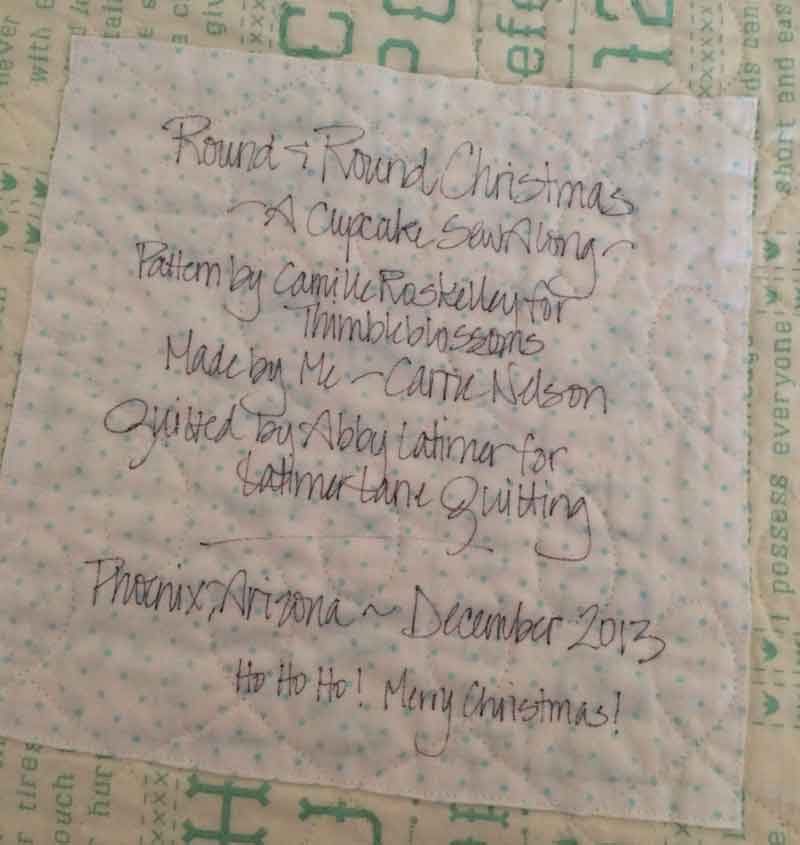 Round & Round Christmas
~A Cupcake Sew Along~
Pattern by Camille Roskelley for
Thimbleblossoms
Made by Me ~ Carrie Nelson
Quilted by Abby Latimer for
Latimer Lane Quilting
Phoenix, Arizona ~ December 2013
Ho Ho Ho! Merry Christmas!
never
with
giv
eff
12
short and eas
I possess everyone
r tires
ouch
hur
H